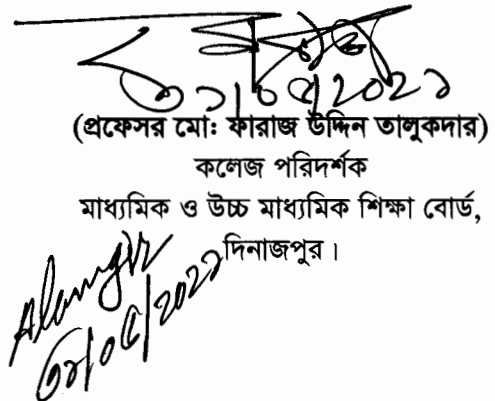 ৩১/০৫/২০২১
(প্রফেসর মো: ফারাজ উদ্দিন তালুকদার)
কলেজ পরিদর্শক
মাধ্যমিক ও উচ্চ মাধ্যমিক শিক্ষা বোর্ড,
দিনাজপুর।
Alamgir
৩১/০৫/২০২১